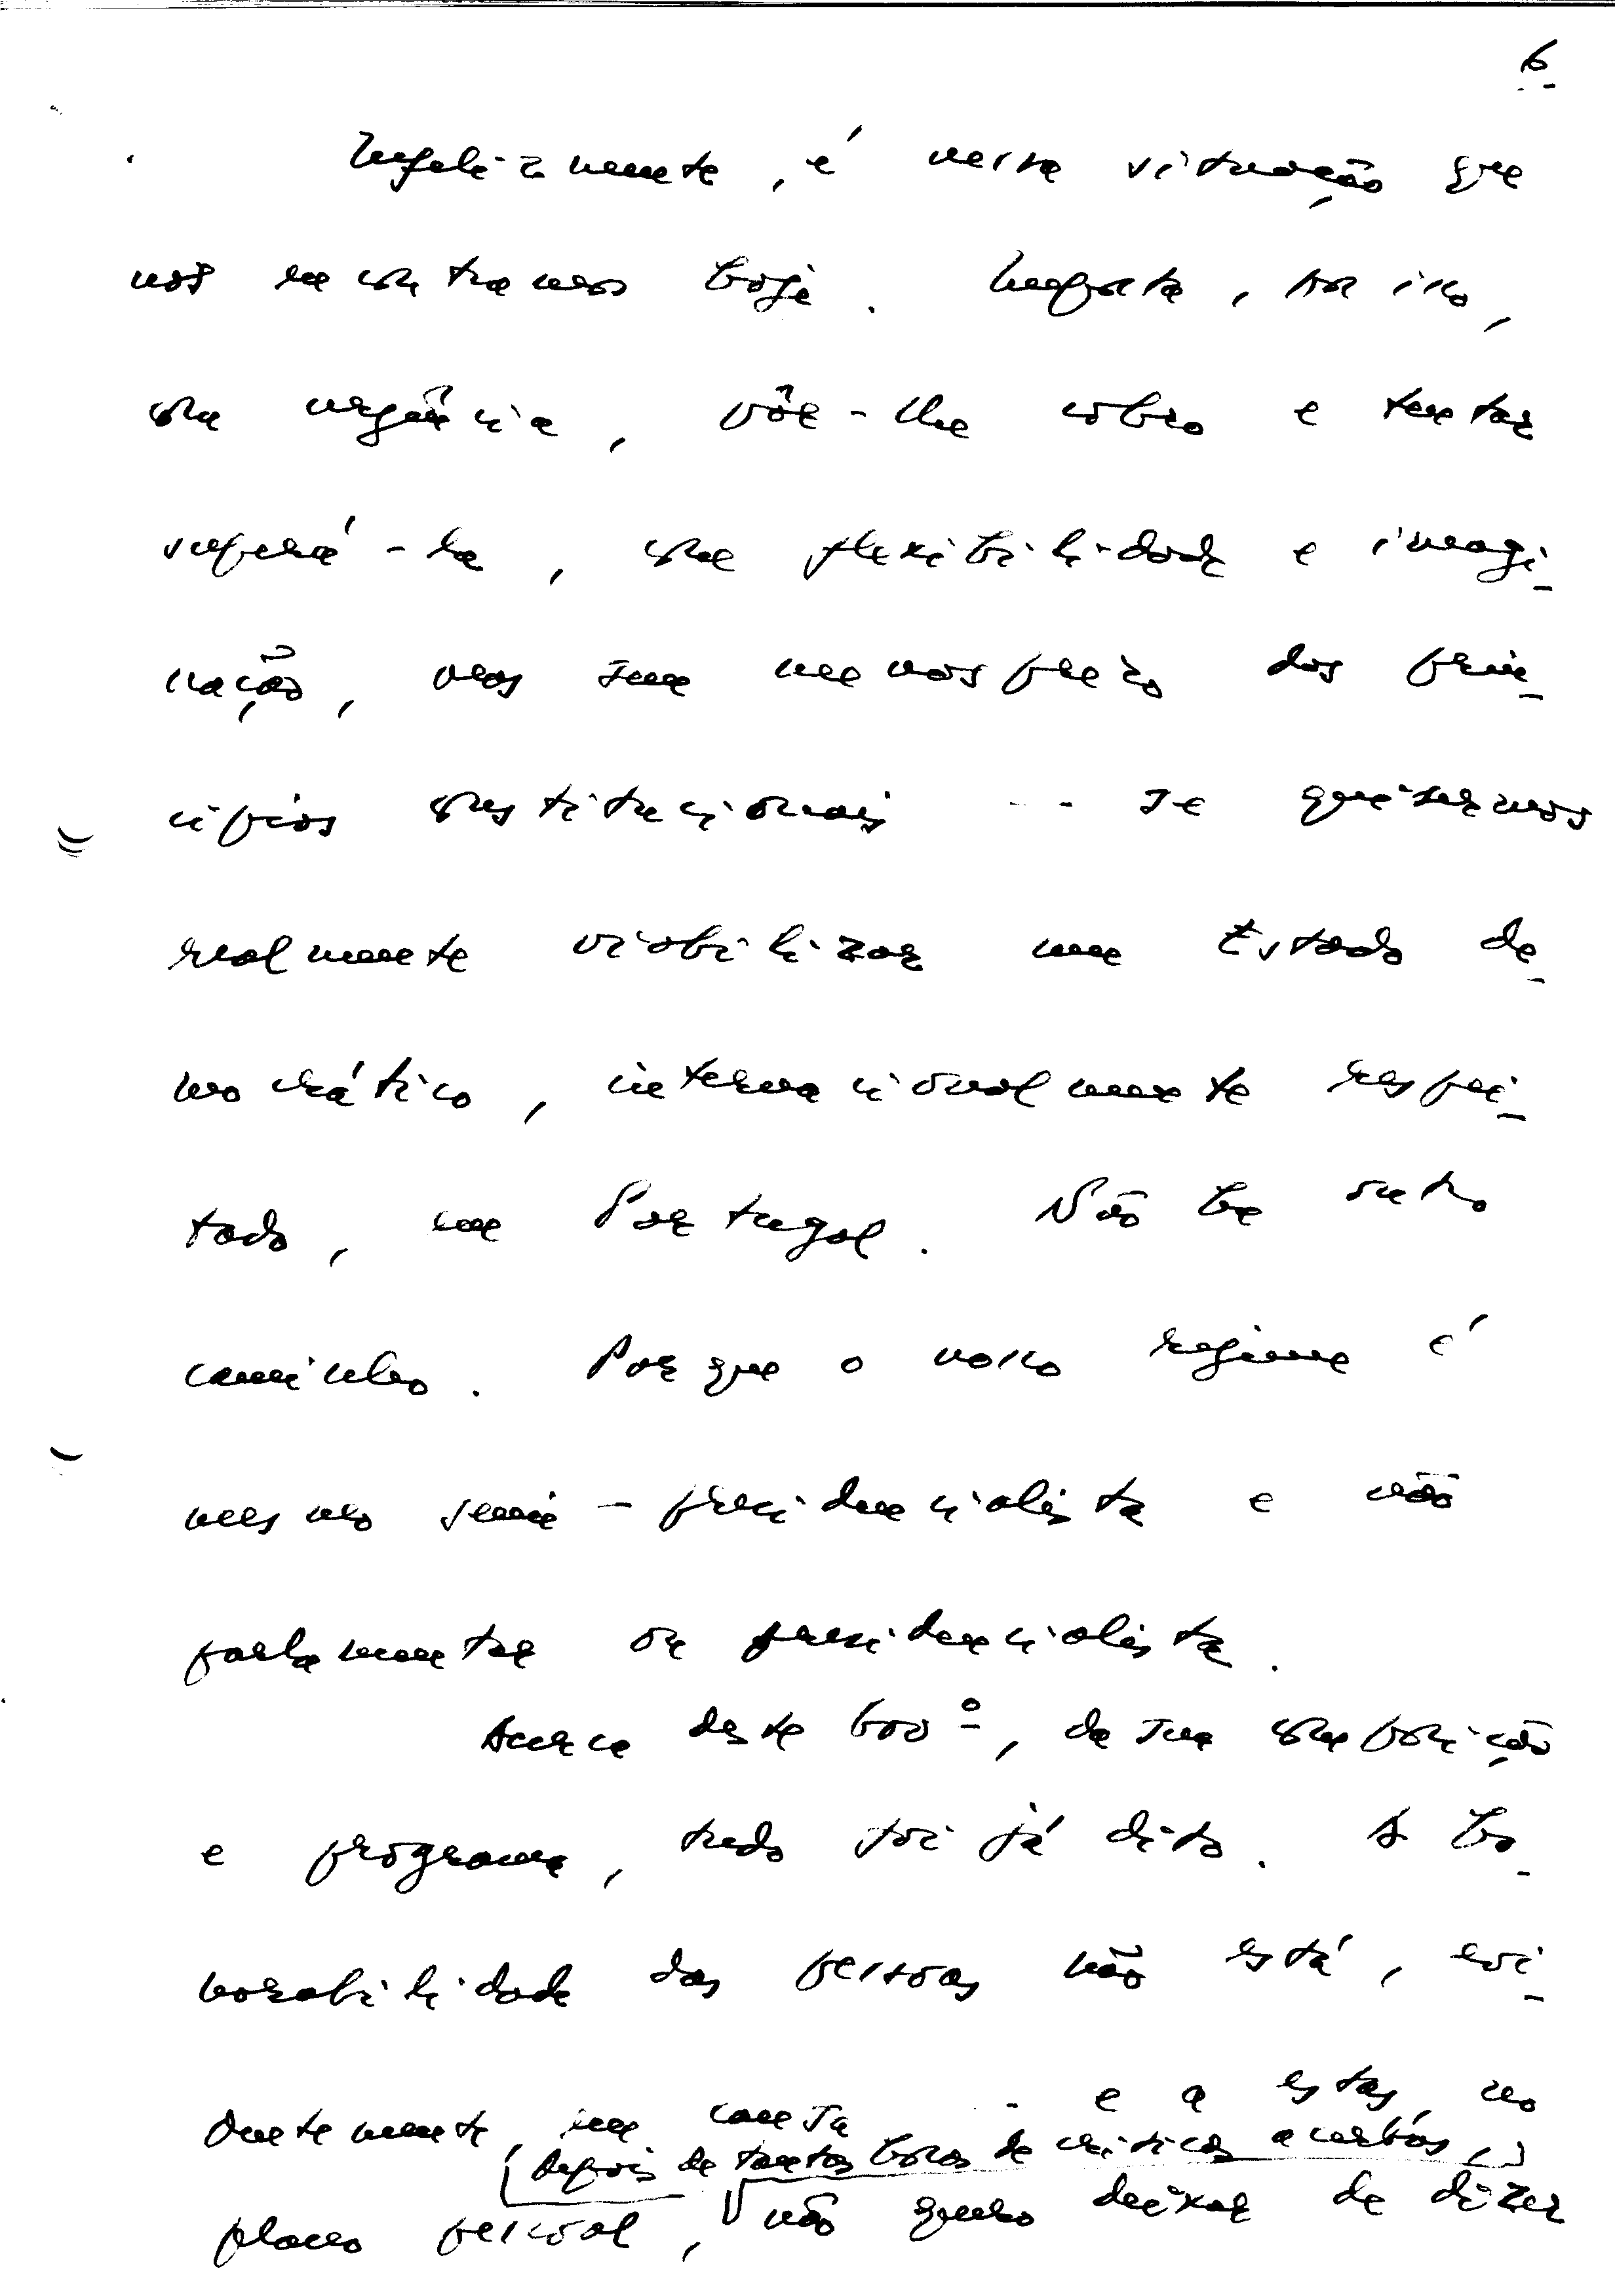 6
Infelizmente, é nessa situação que
nos encontramos hoje. Importa, por isso,
com urgência, pôr-lhe cobro e tentar
superá-la, com flexibilidade e imagi-
nação, mas sem menosprezo dos prin-
cípios constitucionais -- se quisermos
realmente viabilizar um Estado de-
mocrático, internacionalmente respei-
tado, em Portugal. Não há outro
caminho. Porque o nosso regime é
mesmo semi-presidencialista e não
parlamentar ou presidencialista.
Acerca deste Govº, da sua composição
e programa, tudo foi já dito. A ho-
norabilidade das pessoas não está, evi-
dentemente, em causa -- e a estas, no
[depois de tantas horas de críticas acerbas,]
plano pessoal, não quero deixar de dizer